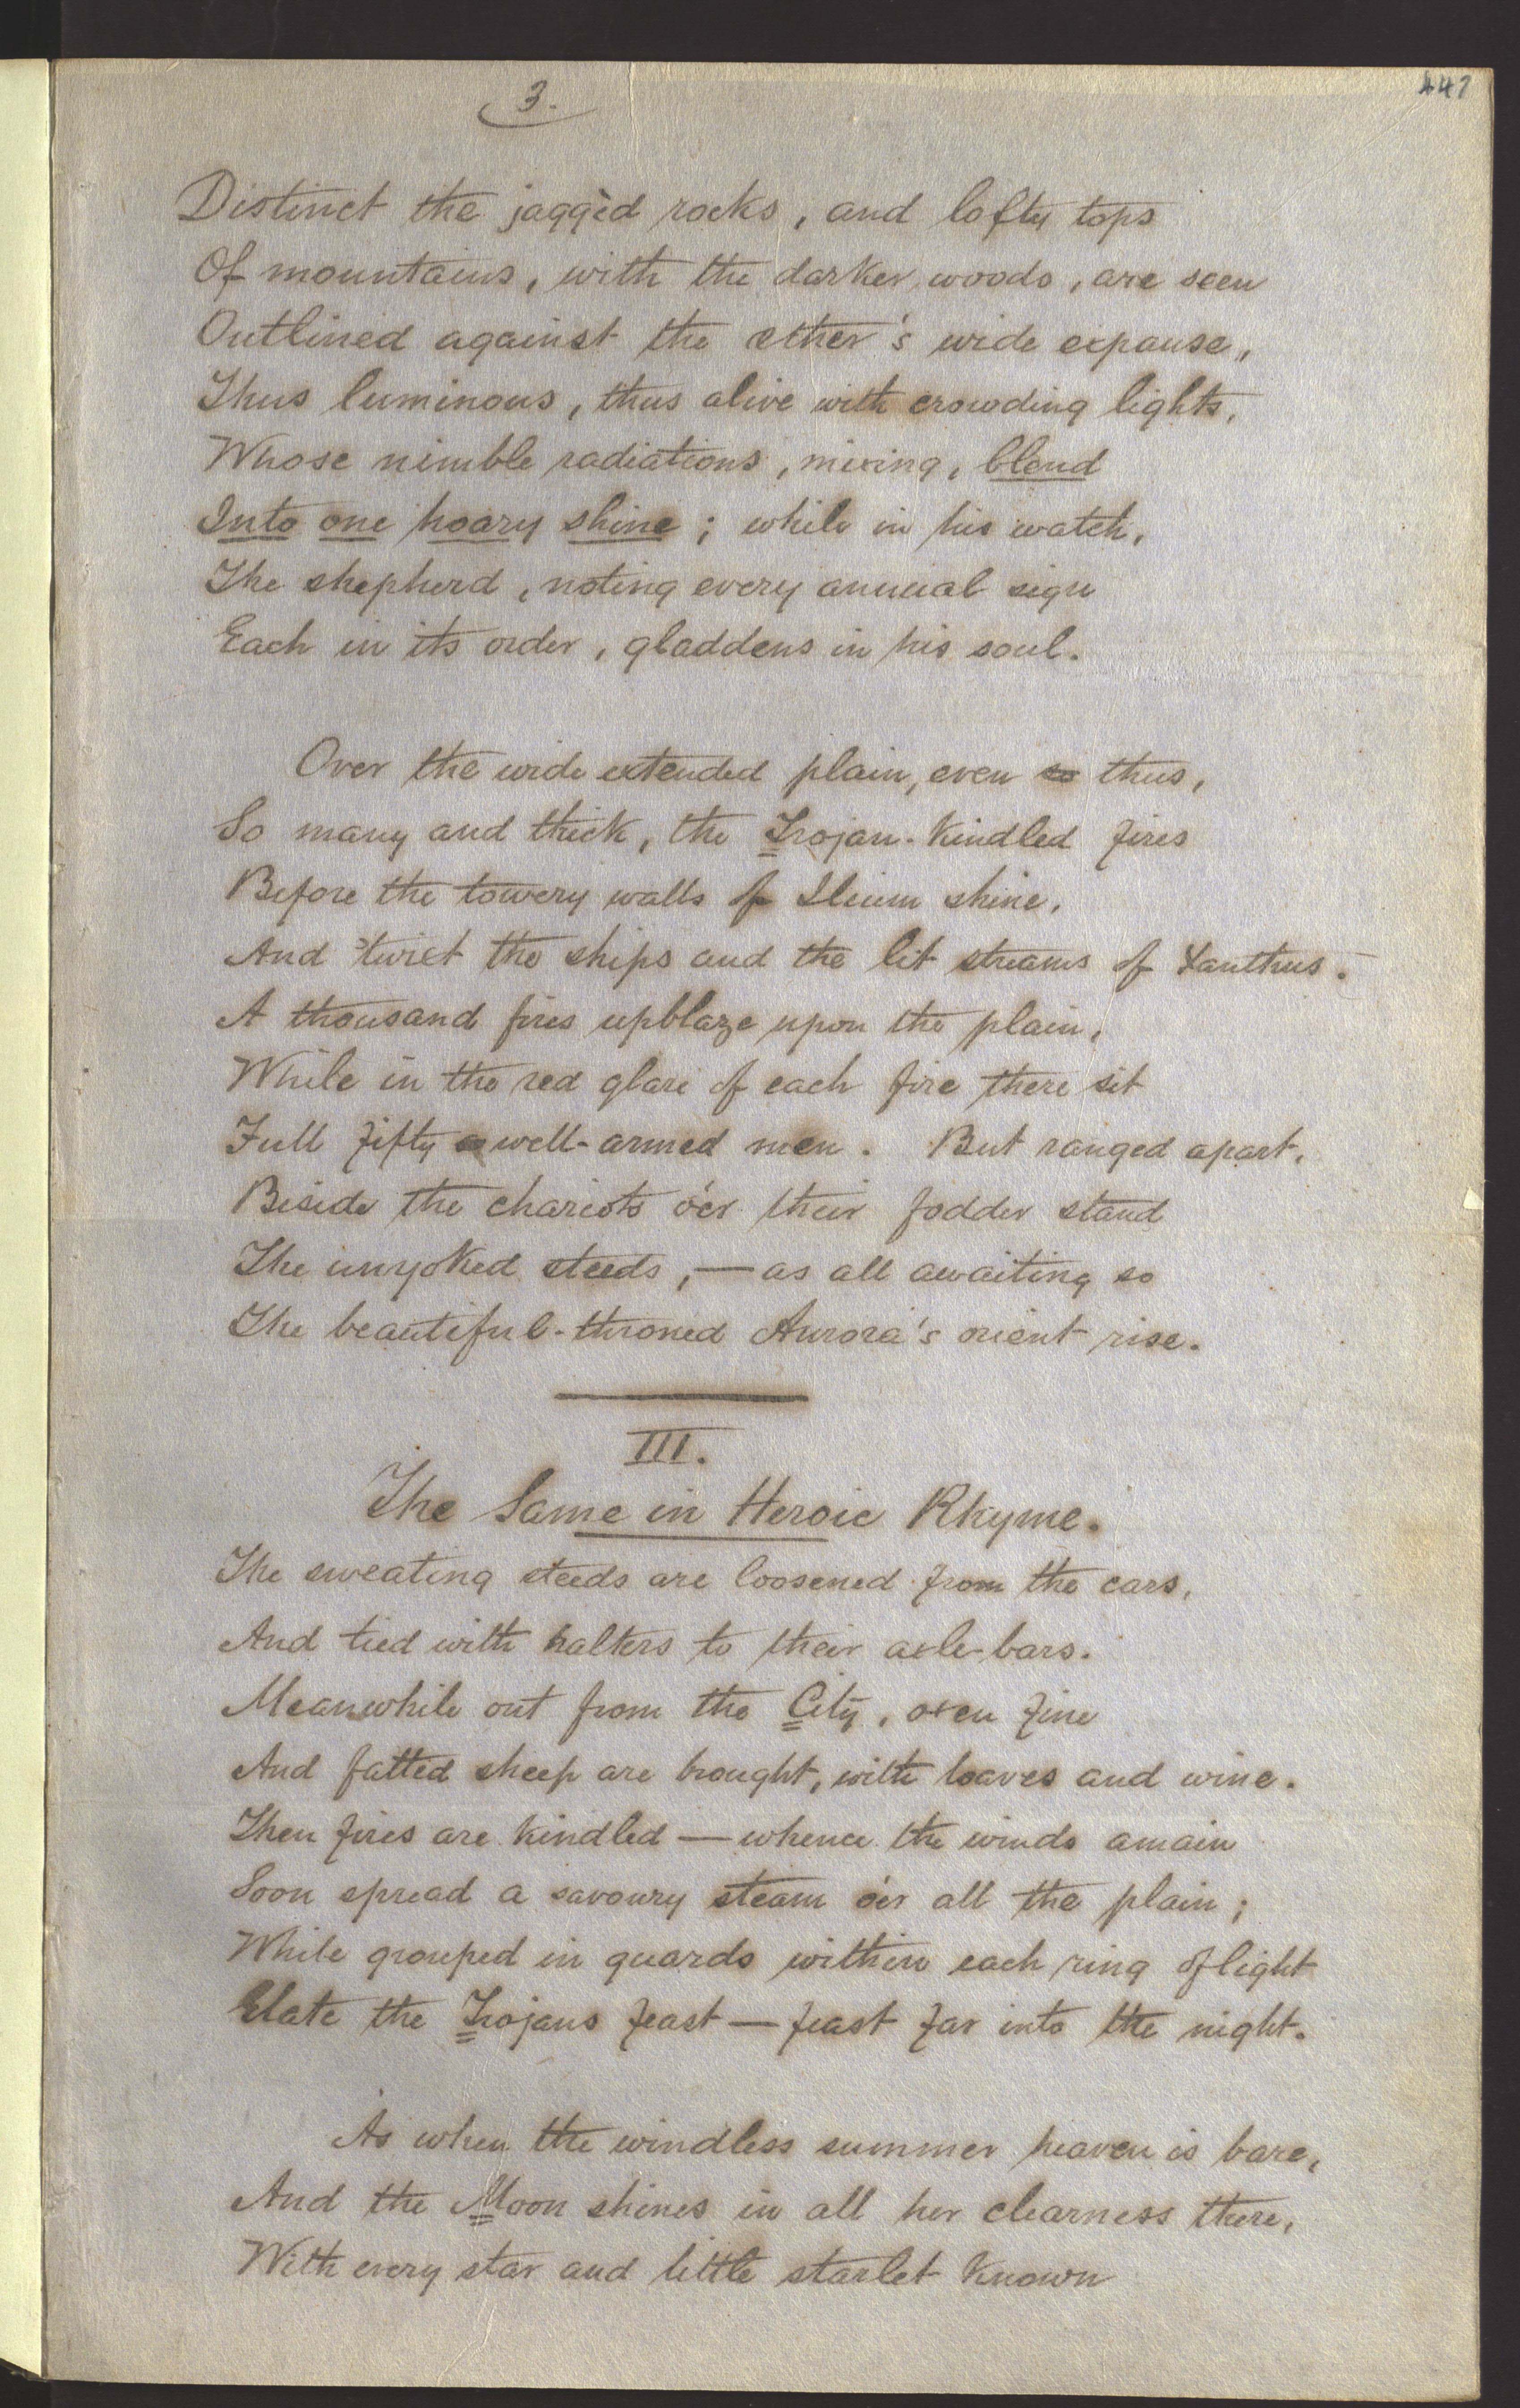 3.
441
Distinct the jaggèd rocks, and lofty tops
Of mountains, with the darker woods, are seen
Outlined against the ether's wide expanse,
Thus luminous, thus alive with crowding lights,
Whose nimble radiations, mixing, blend
Into one hoary shine; while in his watch,
The shepherd, noting every annual sign
Each in its order, gladdens in his soul.
Over the wide extended plain, even so thus,
So many and thick, the Trojan-kindled fires
Before the towery walls of Ilium shine,
And 'twixt the ships and the lit streams of Xanthus.
A thousand fires upblaze upon the plain,
While in the red glare of each fire there sit
Full fifty well-armed men. But ranged apart,
Beside the chariots o'er their fodder stand
The unyoked steeds,—as all awaiting so
The beautiful-throned Aurora's orient rise.
III.
The Same in Heroic Rhyme.
The sweating steeds are loosened from the cars,
And tied with halters to their axle-bars.
Meanwhile out from the City, oxen fine
And fatted sheep are brought, with loaves and wine.
Then fires are kindled—whence the winds amain
Soon spread a savoury steam o'er all the plain;
While grouped in guards within each ring of light
Elate the Trojans feast—feast far into the night.
As when the windless summer heaven is bare,
And the Moon shines in all her clearness there,
With every star and little starlet known